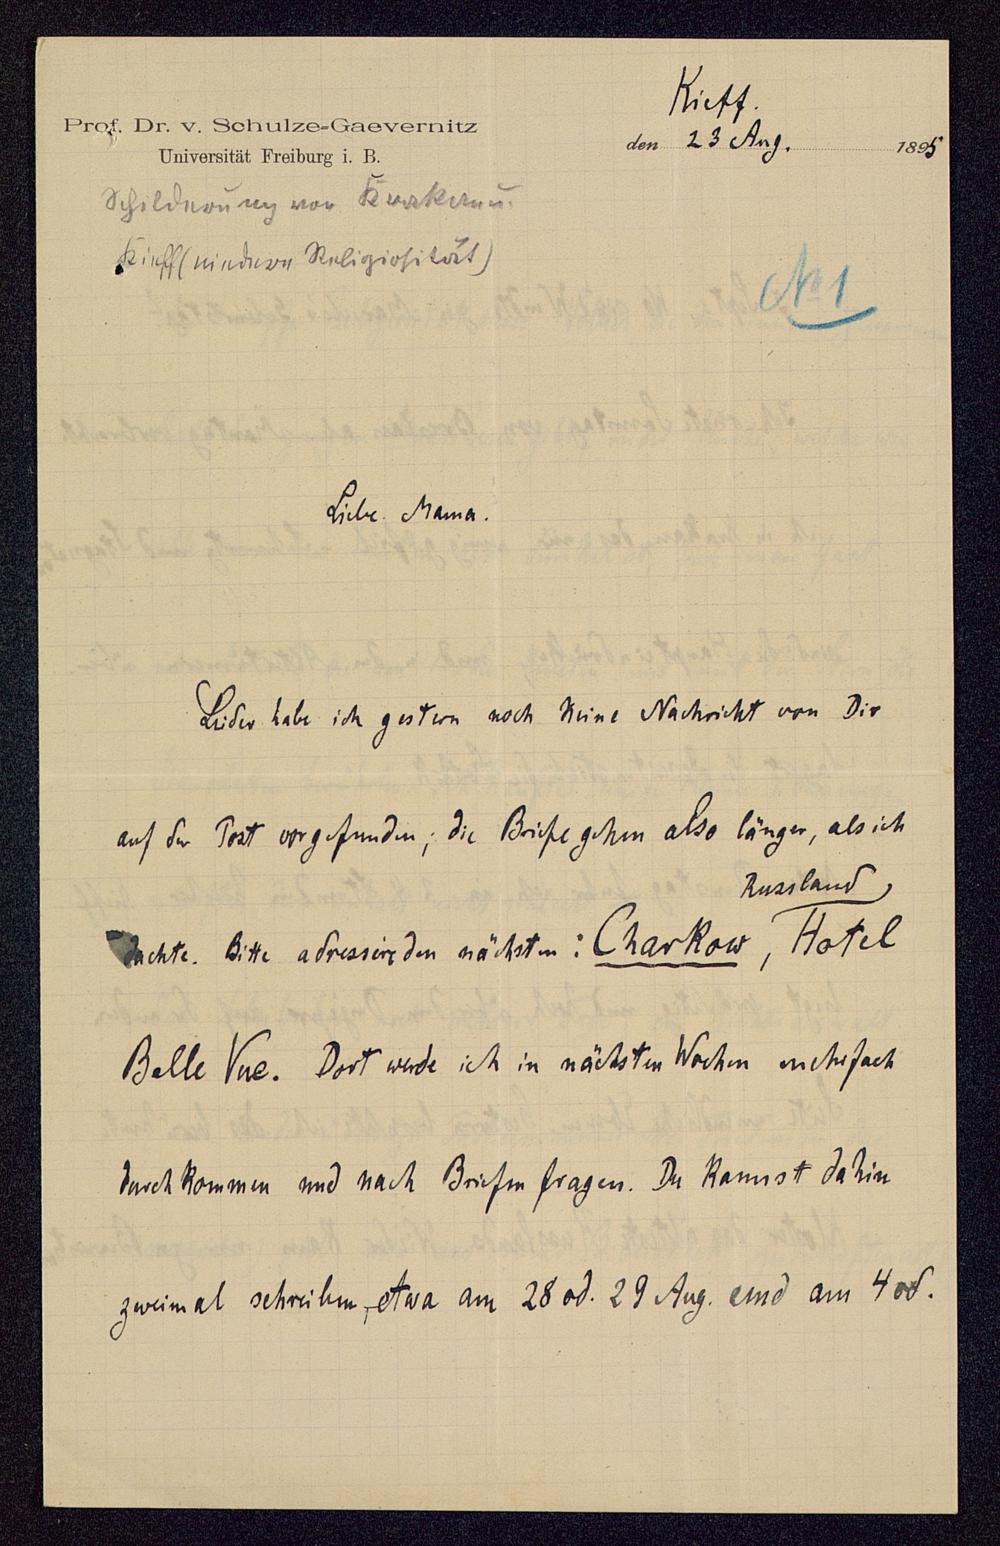 Kieff.
Prof. Dr. v. Schulze-Gaevernitz
den 23 Aug. 1895
Universität Freiburg i. B.
Schilderung von Krakau u.
Kieff (niedere Religiosität)
No 1
Liebe Mama.
Leider habe ich gestern noch keine Nachricht von Dir
auf der Post vorgefunden; die Briefe gehen also länger, als ich
Russland
dachte. Bitte adressire den nächsten: Charkow, Hotel
Belle Vue. Dort werde ich in nächsten Wochen mehrfach
durchkommen und nach Briefen fragen. Du kannst dahin
zweimal schreiben, etwa am 28 od. 29 Aug. und am 4 od.